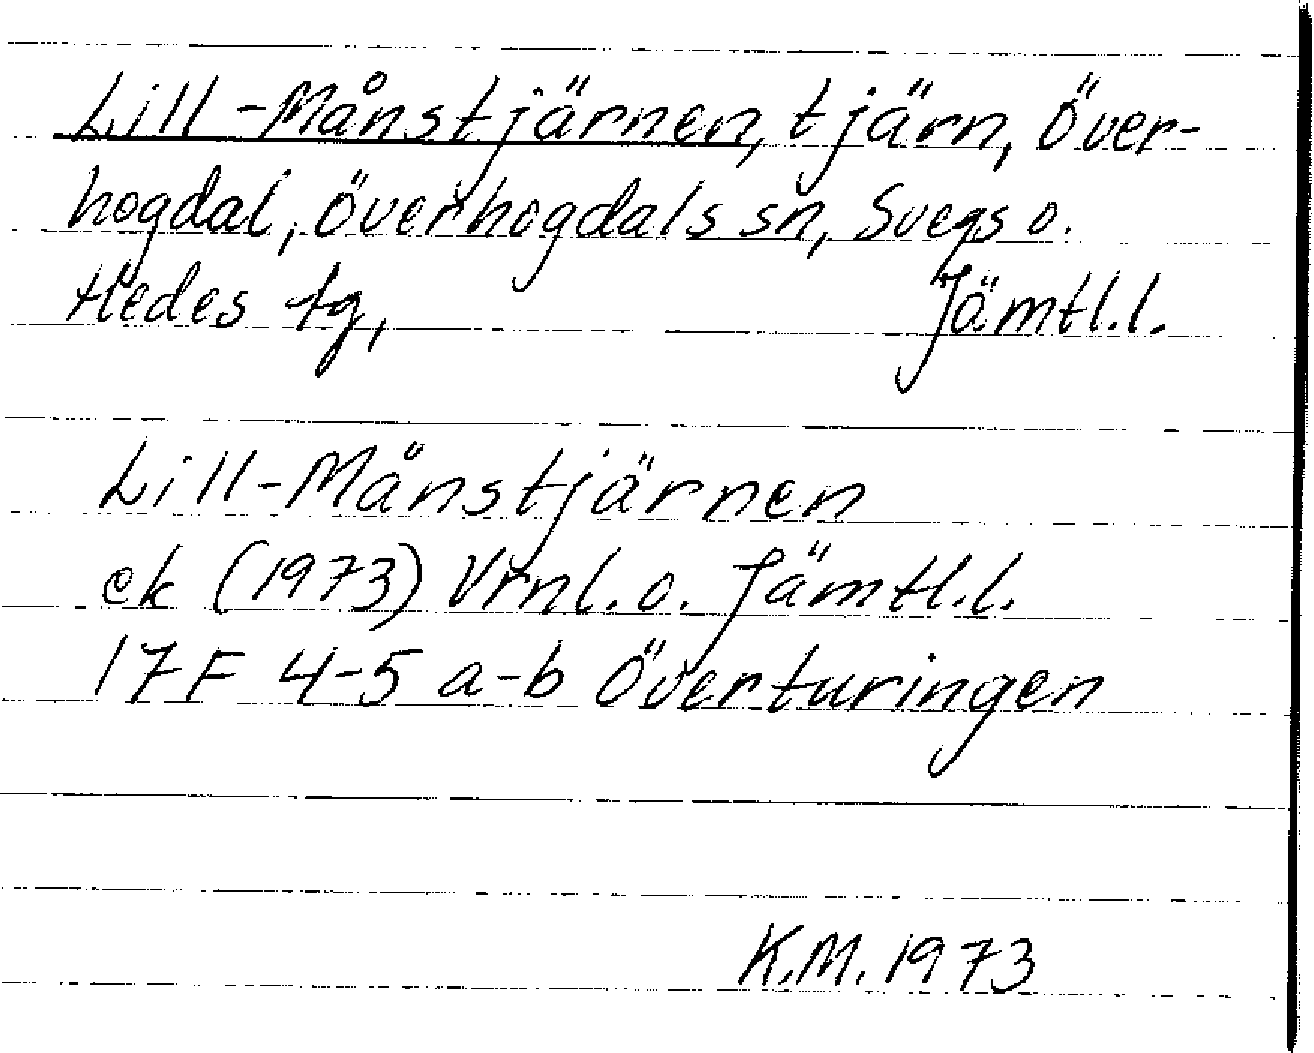 Lill-Månstjärnen, tjärn, Över-
hogdal, Överhogdals sn, Svegs o.
Hedes tg, Jämtl.l.
Lill-Månstjärnen
ek (1973) Vrnl. o. Jämtl.l.
17F 4-5 a-b Överturingen
K.M. 1973